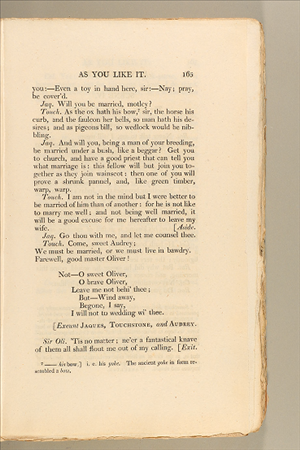 AS YOU LIKE IT. 165
you:—Even a toy in hand here, sir:—Nay; pray,
be cover'd.
Jaq. Will you be married, motley?
Touch. As the ox hath his bow,⁷ sir, the horse his
curb, and the faulcon her bells, so man hath his de-
sires; and as pigeons bill, so wedlock would be nib-
bling.
Jaq. And will you, being a man of your breeding,
be married under a bush, like a beggar? Get you
to church, and have a good priest that can tell you
what marriage is: this fellow will but join you to-
gether as they join wainscot: then one of you will
prove a shrunk pannel, and, like green timber,
warp, warp.
Touch. I am not in the mind but I were better to
be married of him than of another: for he is not like
to marry me well; and not being well married, it
will be a good excuse for me hereafter to leave my
wife. [Aside.
Jaq. Go thou with me, and let me counsel thee.
Touch. Come, sweet Audrey;
We must be married, or we must live in bawdry.
Farewell, good master Oliver!
Not—O sweet Oliver,
O brave Oliver,
Leave me not behi' thee;
But—Wind away,
Begone, I say,
I will not to wedding wi' thee.
[Exeunt JAQUES, TOUCHSTONE, and AUDREY.
Sir Oli. 'Tis no matter; ne'er a fantastical knave
of them all shall flout me out of my calling. [Exit.
⁷ —— his bow,] i. e. his yoke. The ancient yoke in form re-
sembled a bow.